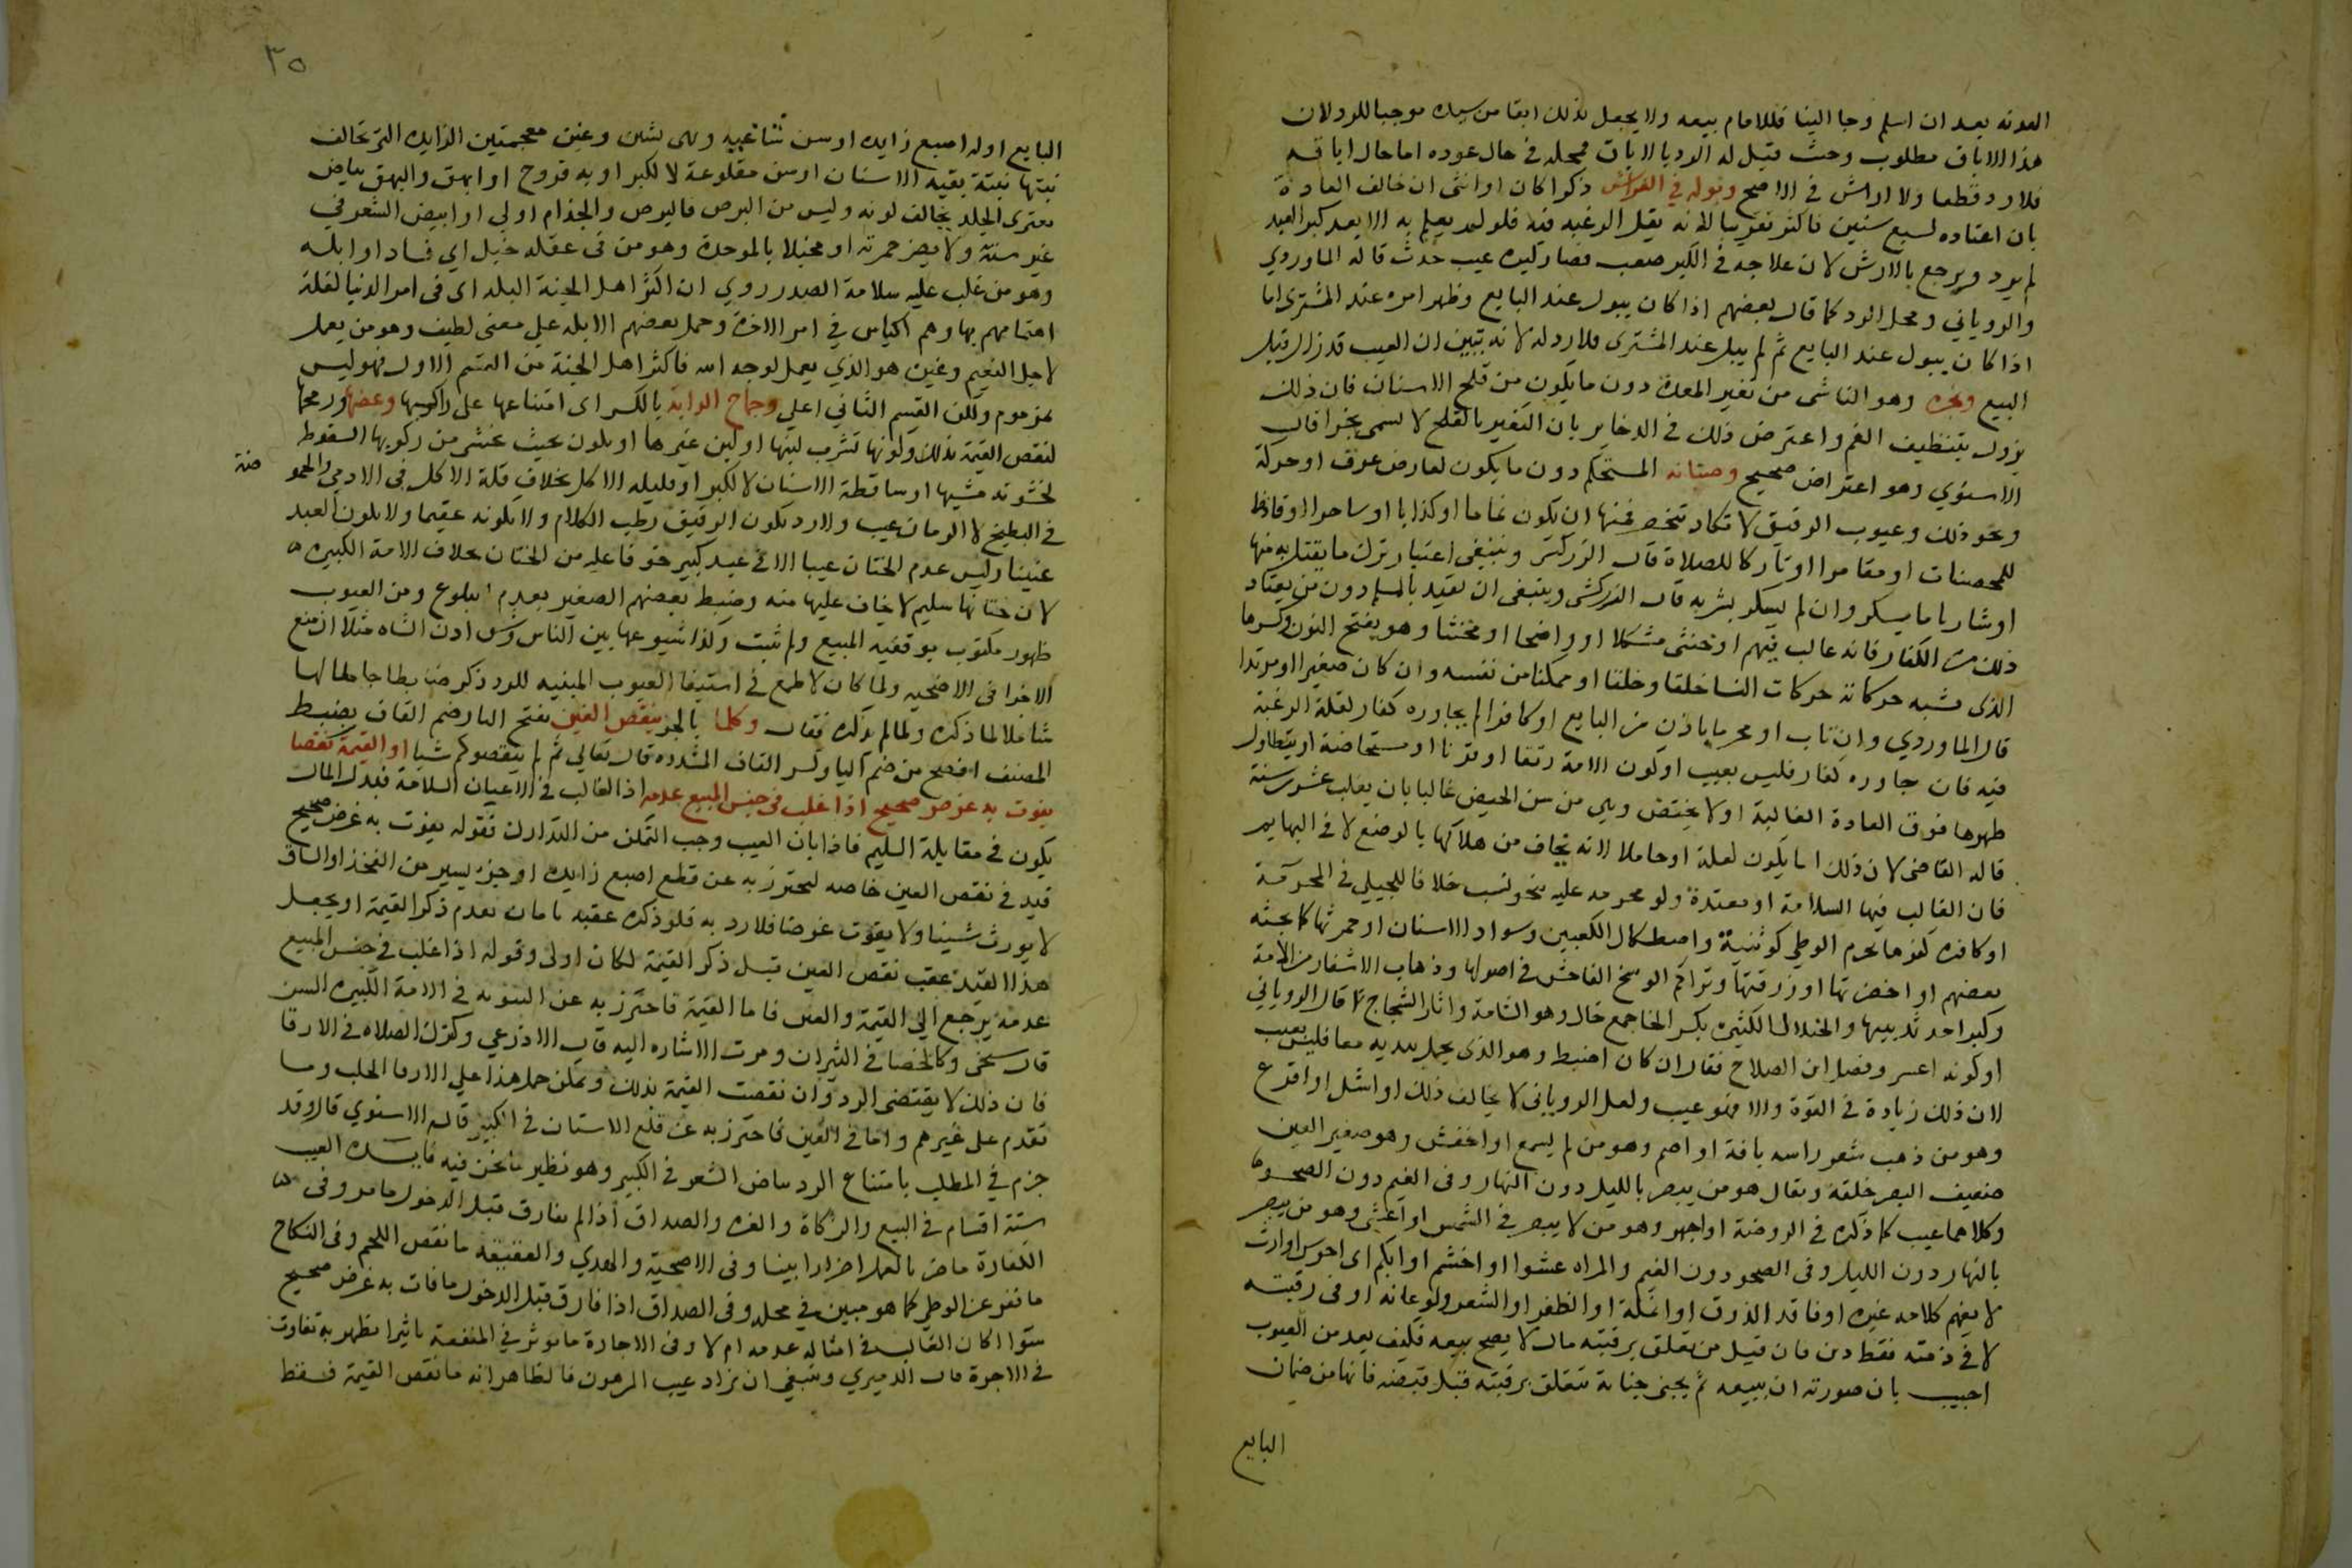 الهدنه بعد ان اسلم وجا الينا فللامام بيعه ولا يجعل بذلك ابقا من سيده موجبا للرد لان
هذا الاباق مطلوب وحيث قيل له الرد بالاباق فمحله في حال عوده اما حال اباقه
فلا رد قطعا ولا ارش في الاصح وبوله في الفراش ذكرا كان او انثى ان خالف العادة
بان اعتاده لسبع سنين فاكثر تقريبا لانه يقل الرغبه فيه فلو لم يعلم به الا بعد كبر العبد
لم يرد ويرجع بالارش لان علاجه في الكبر صعب فصار كبره عيب حدث قاله الماوردي
والروياني ومحل الرد كما قال بعضهم اذا كان يبول عند البايع وظهر امره عند المشترى اما
اذا كان يبول عند البايع ثم لم يبل عند المشترى فلا رد له لانه تبين ان العيب قد زال قبل
البيع وبخره وهو الناشى من تغير المعدة دون ما يكون من قلح الاسنان فان ذلك
يزول بتنظيف الفم واعترض ذلك في الدخاير بان التغير بالقلح لا يسمى بخرا قال
الاسنوي وهو اعتراض صحيح وصنانه المستحكم دون ما يكون لعارض عرق او حركة
ونحو ذلك وعيوب الرقيق لا تكاد تنحصر فمنها ان يكون نماما او كذابا او ساحرا او قاذفا
للمحصنات او مقامرا او تاركا للصلاة قال الزركشى وينبغى اعتبار ترك ما يقتل به منها
او شاربا ما يسكر وان لم يسكر بشربه قال الزركشى وينبغى ان يقيد بالمسلم دون من يعتاد
ذلك من الكفار فانه غالب فيهم او خنثى مشكلا او واضحا او مخنثا وهو بفتح النون وكسرها
الذى تشبه حركاته حركات النسا خلقا وخلقا او ممكنا من نفسه وان كان صغيرا او مرتدا
قال الماوردي وان تاب او محرما باذن من البايع او كافرا لم يجاوره كفار لقلة الرغبة
فيه فان جاوره كفار فليس بعيب او كون الامة رتقا او قرنا او مستحاضة او يتطاول
طهرها فوق العادة الغالبة او لا تحيض وهى من سن الحيض غالبا بان بغلت عشرين سنة
قاله القاضى لان ذلك انما يكون لعلة او حاملا لانه يخاف من هلاكها بالوضع لا في البهايم
فان الغالب فيها السلامة او معتدة ولو محرمه عليه بنحو نسب خلافا للجيلى في المحرمة
او كافرة كفرها يحرم الوطى كوثنية واصطكاك الكعبين وسواد الاسنان او حمرتها كما بحثه
بعضهم او اخضرتها او زرقتها وتراكم الوسخ الفاحش في اصولها وذهاب الاشفار من الامة
وكبر احد ثدييها والخيلان الكثيرة بكسر الخا جمع خال وهو الشامة واثار الشجاج كما قال الروياني
او كونه اعسر وفصل ابن الصلاح فقال ان كان اضبط وهو الذى يعمل بيديه معا فليس بعيب
لان ذلك زيادة في القوة والا فهو عيب ولعل الروياني لا يخالف ذلك او اشل او اقرع
وهو من ذهب شعر راسه بافة او اصم وهو من لم يسمع او اخفش وهو صغير العين
ضعيف البصر خلقة ويقال هو من يبصر بالليل دون النهار وفى الغيم دون الصحو
وكلاهما عيب كما ذكره في الروضة او اجهر وهو من لا يبصر في الشمس او اعشى وهو من يبصر
بالنهار دون الليل وفى الصحو دون الغيم والمراه عشوا او اخشم او ابكم اى اخرس او ارت
لا يفهم كلامه غيره او فاقد الذوق او انملة او الظفر او الشعر ولو عانه او فى رقبته
لا في ذمته فقط دين فان قيل من تعلق برقبته مال لا يصح بيعه فكيف يعد من العيوب
اجيب بان صورته ان يبيعه ثم يجنى جناية تتعلق برقبته قبل قبضه فانها من ضمان
البايع
٣٥
البايع او له اصبع زايده او سن شاغيه وهى بشين وغين معجمتين الزايده التى تخالف
نبتها نبتة بقية الاسنان او سن مقلوعة لا لكبر او به قروح او ابهق والبهق بياض
يعترى الجلد يخالف لونه وليس من البرص فالبرص والجذام اولى او ابيض الشعر في
غير سنه ولا يضر حمرته او مخبلا بالموحدة وهو من فى عقله خبل اى فساد او ابله
وهو من غلب عليه سلامة الصدر روي ان اكثر اهل الجنة البله اى فى امر الدنيا لقلة
اهتمامهم بها وهم اكياس في امر الاخرة وحمل بعضهم الابله على معنى لطيف وهو من يعمل
لاجل النعيم وغيره هو الذي يعمل لوجه الله فاكثر اهل الجنة من القسم الاول فهو ليس
بمزموم ولكن القسم الثاني اعلى وجماح الدابة بالكسر اى امتناعها على راكبها وعضها ورمحها
لنقص القيمة بذلك وكونها تشرب لبنها او لبن غيرها او يكون بحيث يخشى من ركوبها السقوط
لخشونة مشيها او ساقطة الاسنان لا لكبر او قليله الاكل بخلاف قلة الاكل فى الادمي والحموضة
في البطيخ لا الرمان عيب ولا رد بكون الرقيق رطب الكلام ولا بكونه عقيما ولا بكون العبد
عنينا وليس عدم الختان عيبا الا في عبد كبير خوفا عليه من الختان بخلاف الامة الكبيرة
لان ختانها سليم لا يخاف عليها منه وضبط بعضهم الصغير بعدم البلوغ ومن العيوب
ظهور مكتوب بوقفيه المبيع ولم يثبت وكذا شيوعها بين الناس وشق اذن الشاه مثلا ان منع
الاجزا فى الاضحيه ولما كان لا طمع في استيفا العيوب المبنيه للرد ذكر ضابطا جامعا لها
شاملا لما ذكره ولما لم يذكره فقال وكلما بالجر ينقص العين بفتح اليا وضم القاف بضبط
المصنف افصح من ضم اليا وكسر القاف المشدده قال تعالى ثم لم ينقصوكم شيا او القيمة نقصا
يفوت به غرض صحيح اذا غلب فى جنس المبيع عدمه اذ الغالب فى الاعيان السلامة فبدل المال
يكون في مقابلة السليم فاذا بان العيب وجب التمكن من التدارك فقوله يفوت به غرض صحيح
قيد في نقص العين خاصه ليحترز به عن قطع اصبع زايده او جزء يسير من الفخذ او الساق
لا يورث شينا ولا يفوت غرضا فلا رد به فلو ذكره عقبه بان تقدم ذكر القيمة او يجعل
هذا القيد عقب نقص العين قبل ذكر القيمة لكان اولى وقوله اذا غلب في جنس المبيع
عدمه يرجع الى القيمة والعين فاما القيمة فاحترز به عن الثيوبه في الامة الكبيره السن
قال شيخى وكالخصا في الثيران ومرت الاشاره اليه قال الاذرعي وكترك الصلاه فى الارقا
فان ذلك لا يقتضى الرد وان نقصت القيمة بذلك ويمكن حمل هذا على الارقا الجلب وما
تقدم على غيرهم واما في العين فاحترز به عن قلع الاسنان في الكبير قاله الاسنوي قال وقد
جزم في المطلب بامتناع الرد ببياض الشعر فى الكبير وهو نظير ما نحن فيه فايده العيب
ستة اقسام في البيع والزكاة والغره والصداق اذا لم يفارق قبل الدخول ما مر وفى
الكفارة ما ضر بالعمل اضرارا بينا وفى الاضحية والهدي والعقيقة ما نقص اللحم وفى النكاح
ما نفر عن الوطى كما هو مبين في محله وفى الصداق اذا فارق قبل الدخول ما فات به غرض صحيح
سوا اكان الغالب فى امثاله عدمه ام لا وفى الاجارة ما يوثر في المنفعة تاثيرا يظهر به تفاوت
فى الاجرة قال الدميري وينبغى ان يزاد عيب المرهون فالظاهر انه ما نقص القيمة فقط